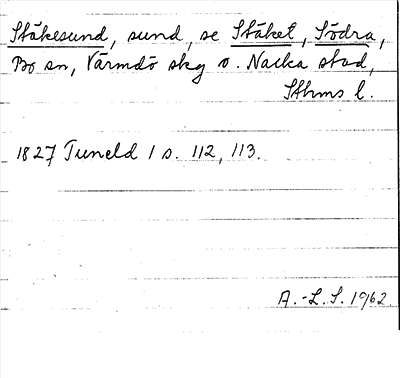 Stäkesund, sund, se Stäket, Södra,
Bo sn, Värmdö skg o. Nacka stad,
Sthms l.
1827 Tuneld 1 s. 112, 113.
A.-L. S. 1962